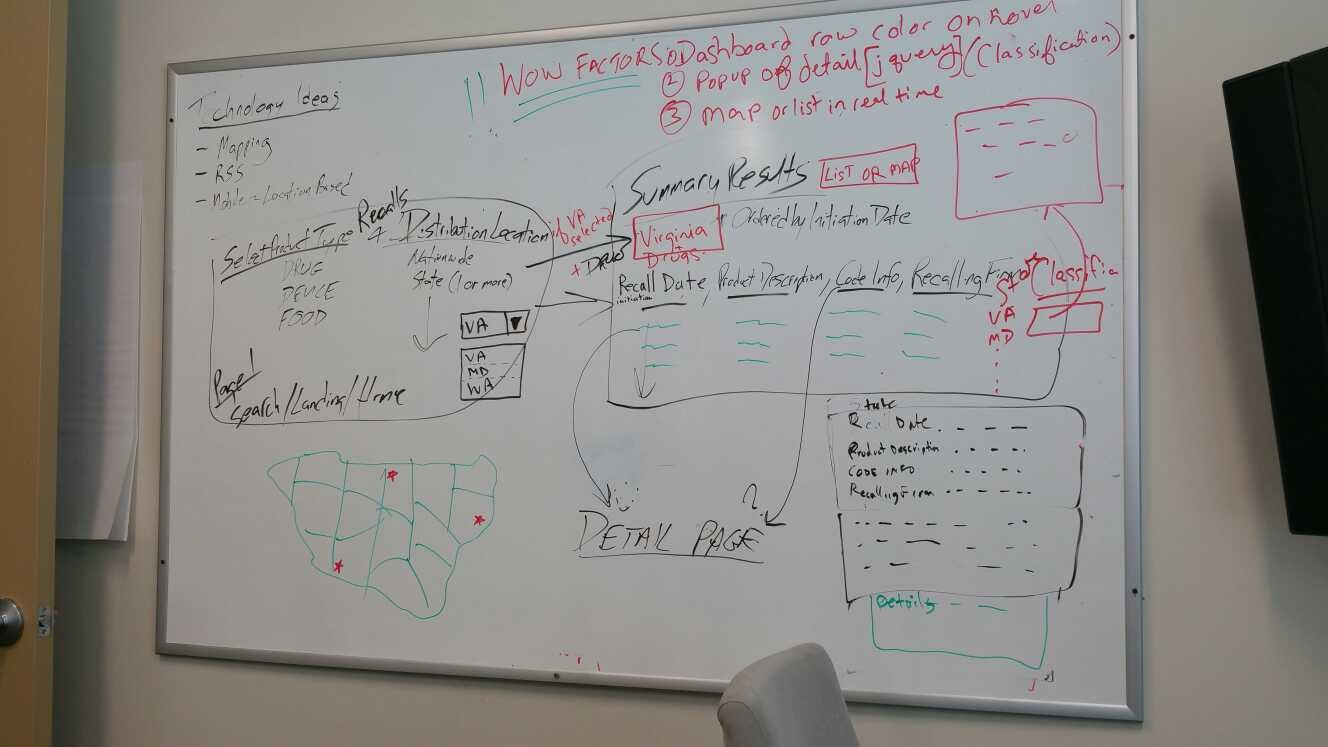 WOW FACTORS Dashboard raw color on hover
② Popup of detail [jquery] (Classification)
③ Map or list in real time
Technology Ideas
- Mapping
- RSS
- Mobile - Location Based
Recalls
Select Product Type + Distribution Location
DRUG
DEVICE
FOOD
Nationwide
State (1 or more)
VA
VA
MD
WA
Page 1
Search/Landing/Home
if VA
selected
+ DRUG
Summary Results
LIST OR MAP
Virginia
Drugs
Ordered by Initiation Date
Recall Date, Product Description, Code Info, Recalling Firm
initiation
Classifica
VA
MD
DETAIL PAGE
?
State
Recall Date
Product Description
CODE INFO
Recalling Firm
Details